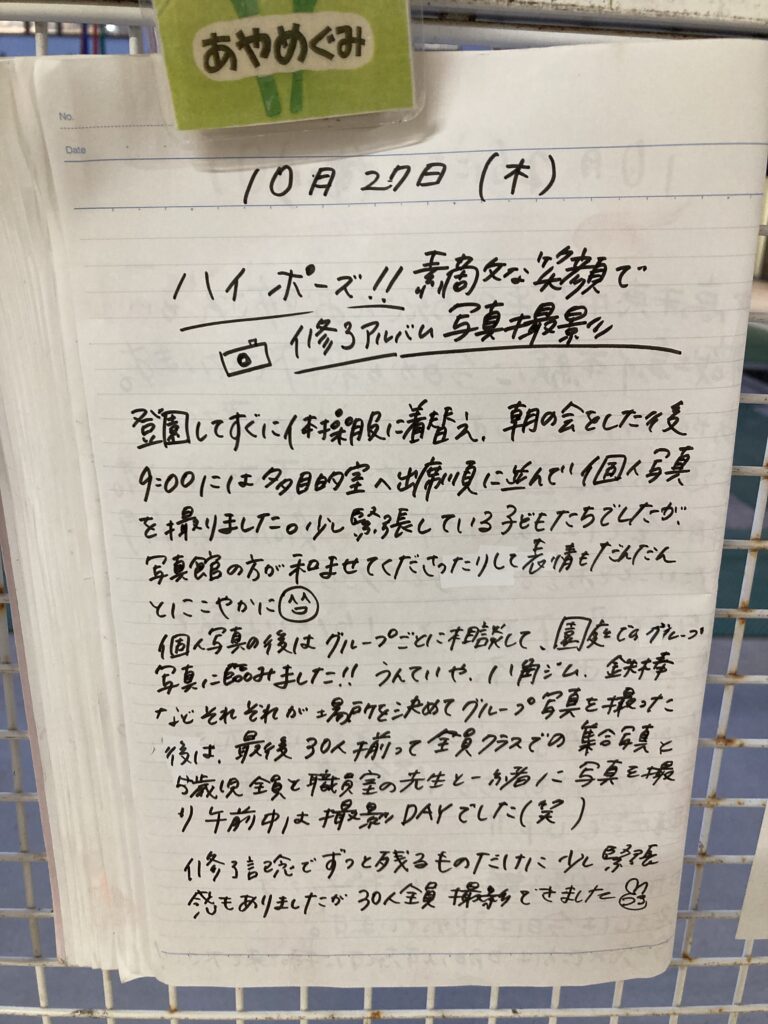 あやめぐみ
No.
Date
10月27日(木)
ハイポーズ!! 素適な笑顔で
修了アルバム写真撮影
登園してすぐに体操服に着替え、朝の会をした後
9:00には多目的室へ出席順に並んで個人写真
を撮りました。少し緊張している子どもたちでしたが、
写真館の方が和ませてくださったりして表情もだんだん
とにこやかに
個人写真の後はグループごとに相談して、園庭でのグループ
写真に臨みました!! うんていや、八角ジム、鉄棒
などそれぞれが場所を決めてグループ写真を撮った
後は、最後30人揃って全員クラスでの集合写真と
5歳児全員と職員室の先生と一緒に写真を撮
り午前中は撮影DAYでした(笑)
修了記念でずっと残るものだけに少し緊張
感もありましたが30人全員撮影できました